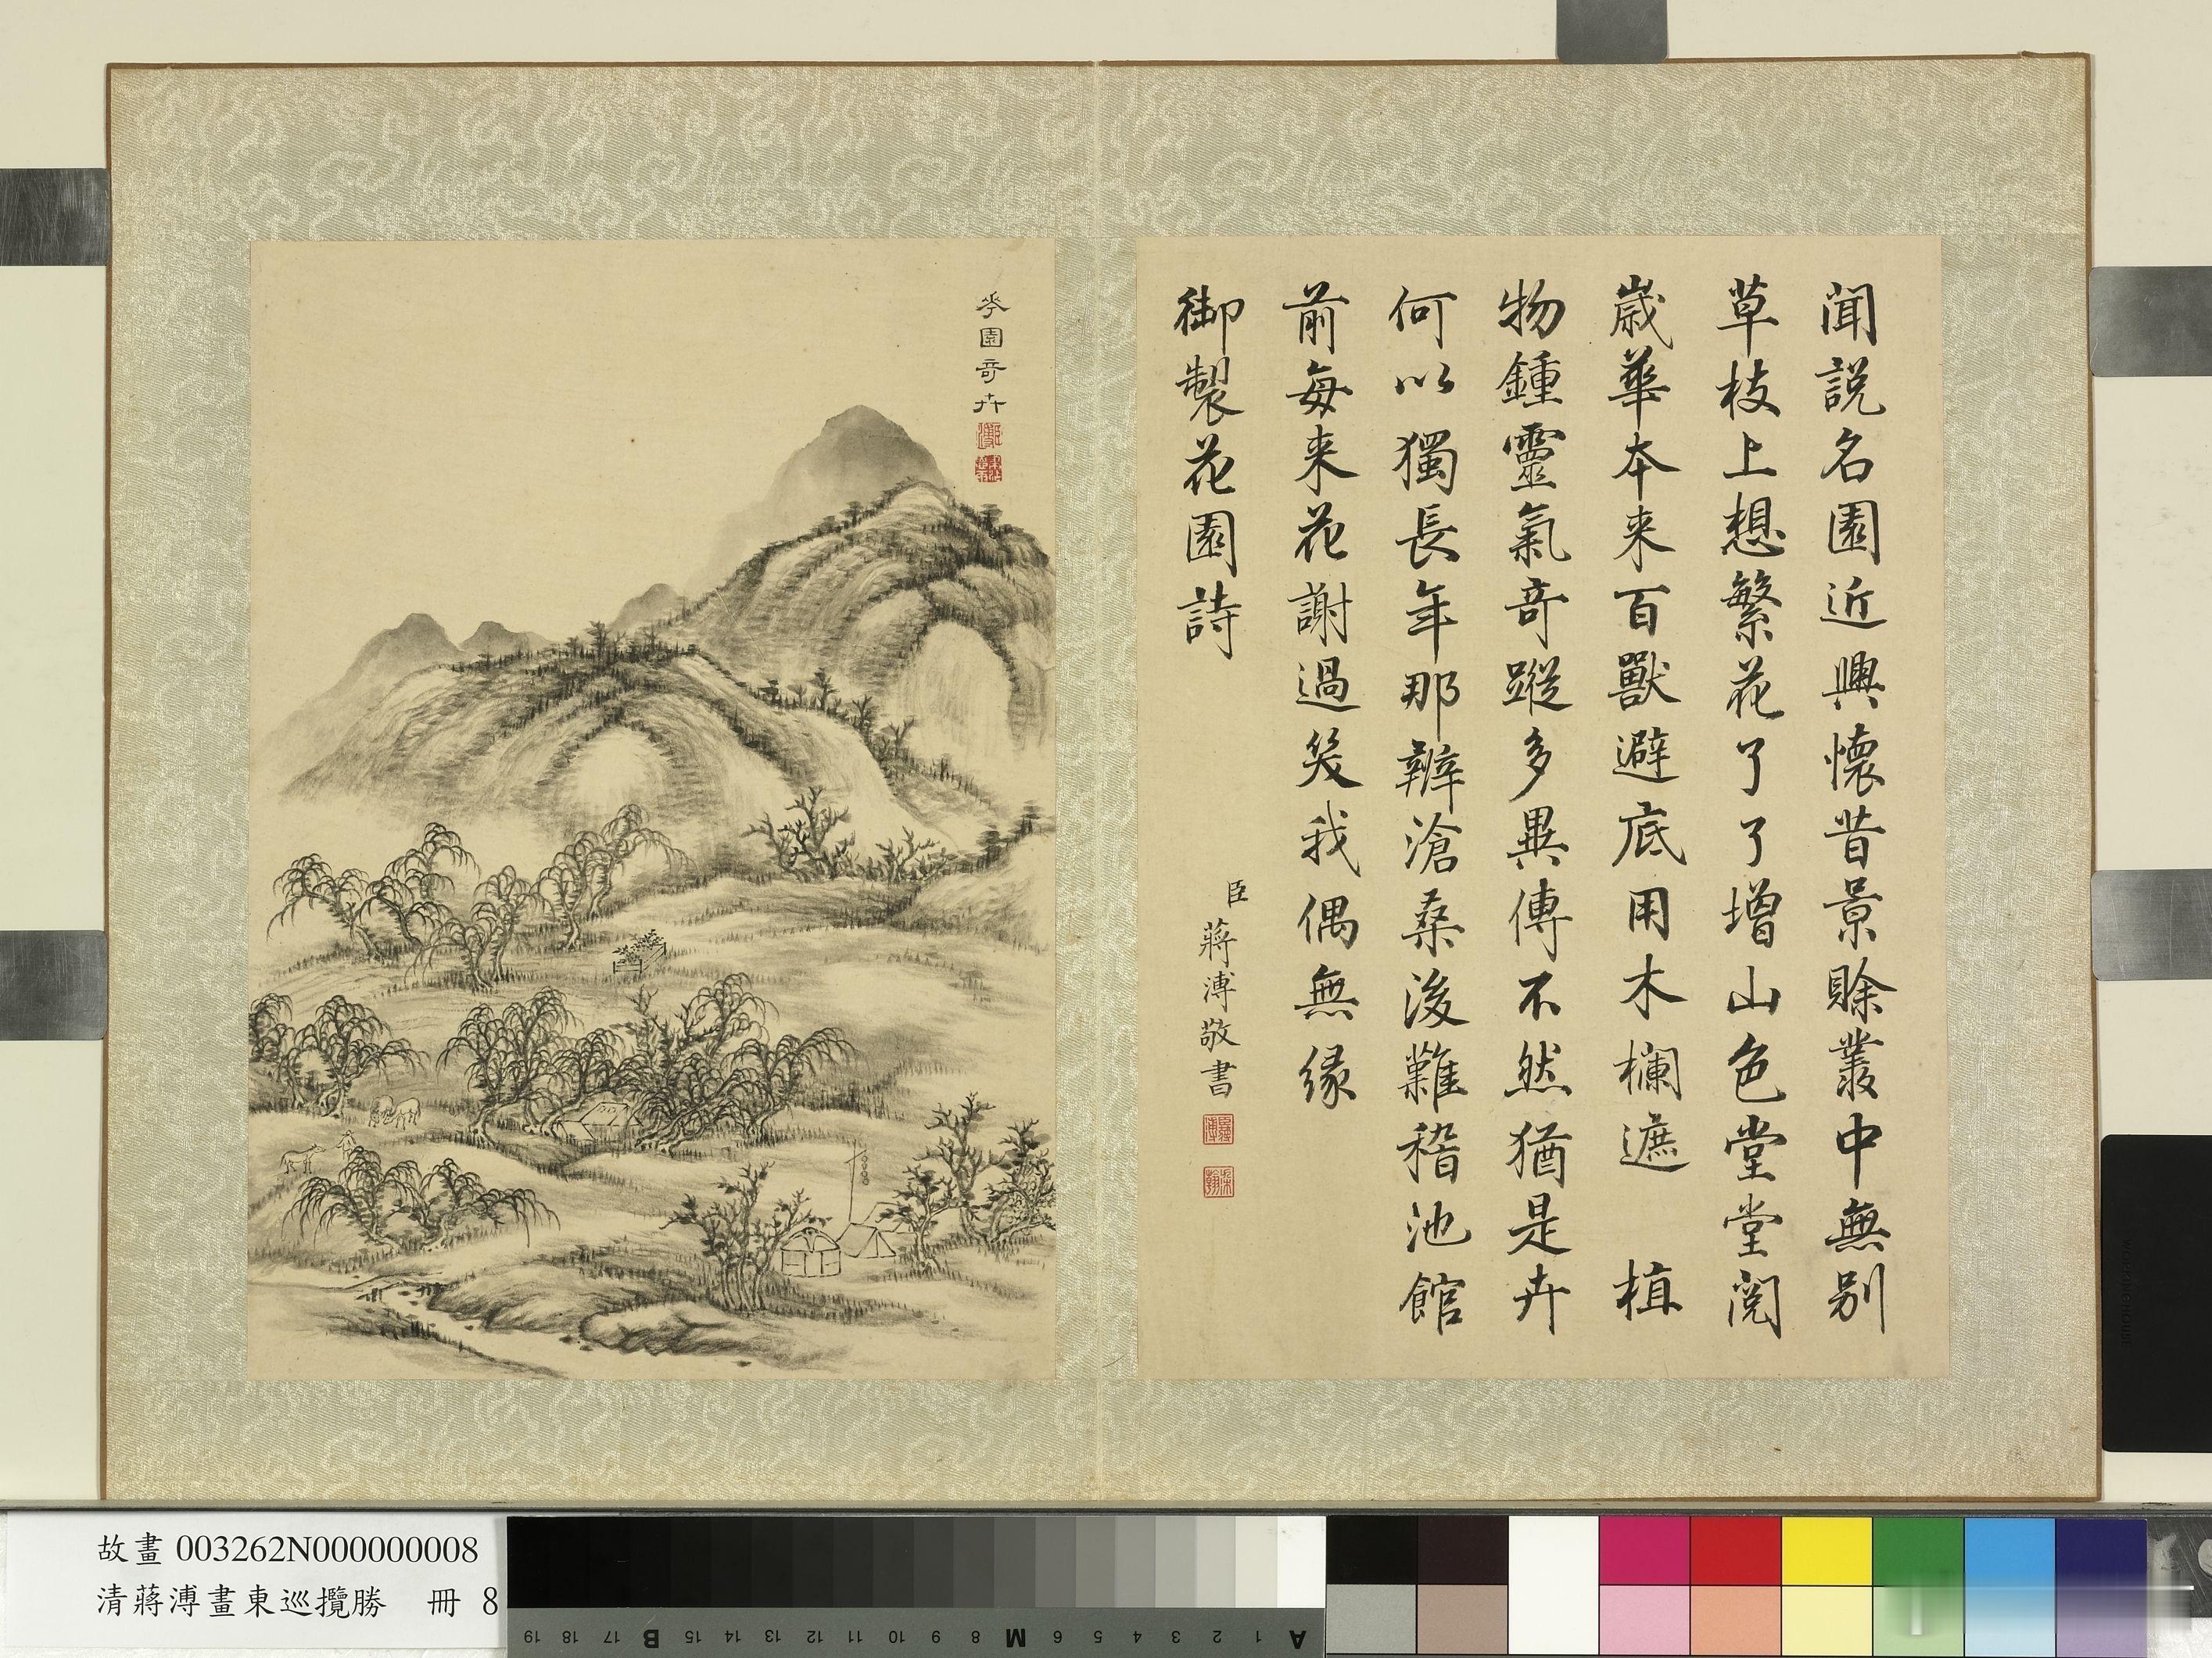 聞說名園近興懷昔景賒叢中無別
草枝上想繁花了了增山色堂堂閱
歲華本来百獸避底用木欄遮 植
物鍾靈氣奇蹤多異傳不然猶是卉
何以獨長年那辨滄桑後難稽池館
前每来花謝過笑我偶無緣
御製花園詩
臣蔣溥敬書
花園奇卉
故畫 003262N000000008
清蔣溥畫東巡攬勝 冊 8
19 18 17 B 15 14 13 12 11 10 9 8 M 6 5 4 3 2 1 A